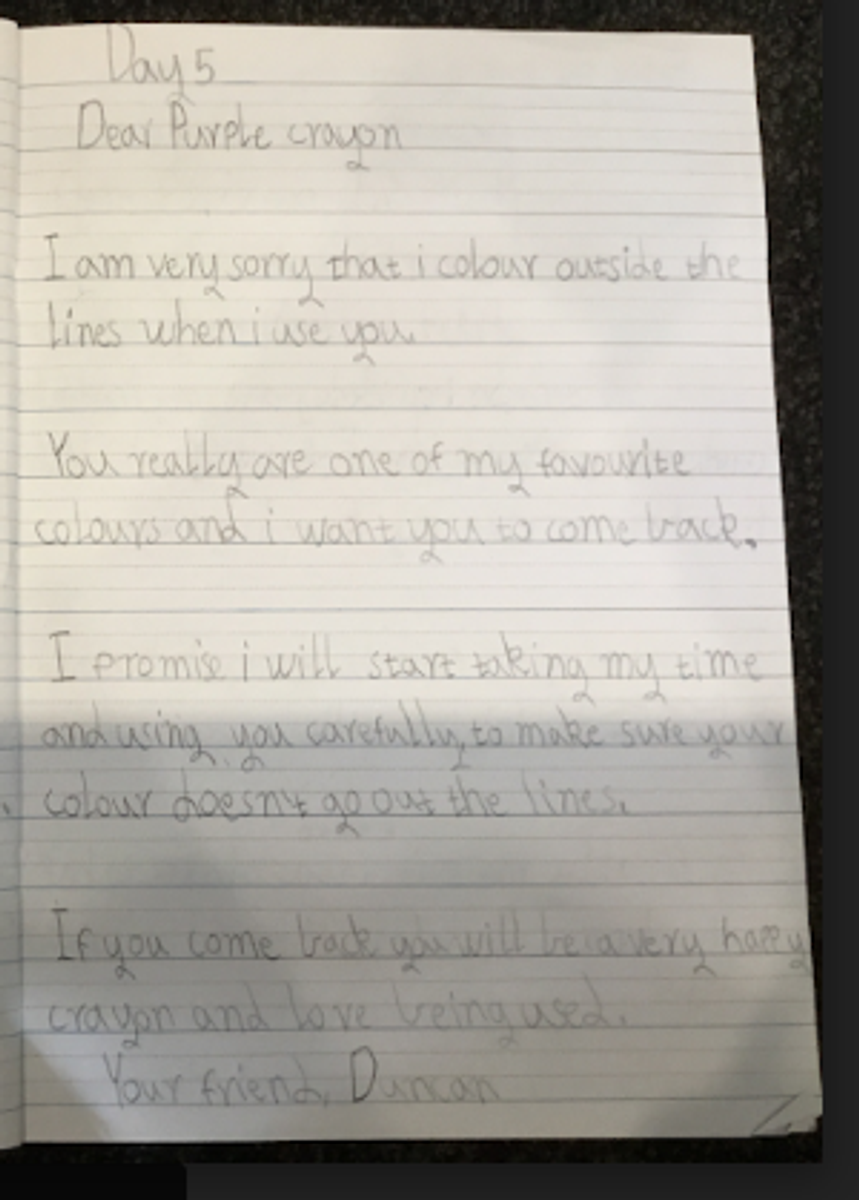 Day 5
Dear Purple crayon
I am very sorry that i colour outside the
lines when i use you.
You really are one of my favourite
colours and i want you to come back.
I promise i will start taking my time
and using you carefully, to make sure your
colour doesn't go out the lines.
If you come back you will be a very happy
crayon and love being used.
Your friend, Duncan